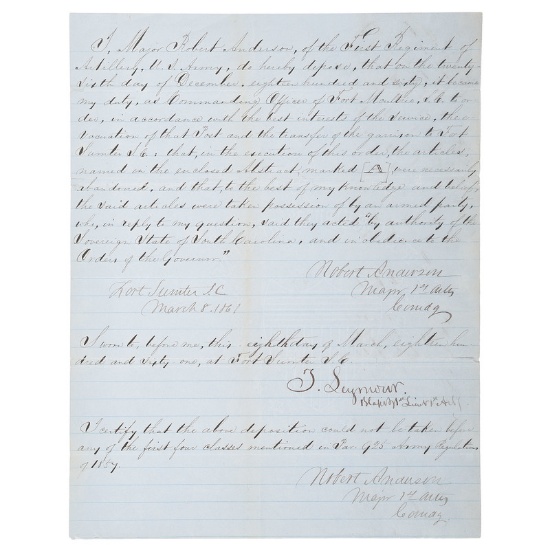 I, Major Robert Anderson, of the First Regiment of
Artillery, U.S. Army, do hereby depose, that on the twenty
sixth day of December, eighteen hundred and sixty, it became
my duty, as Commanding Officer of Fort Moultrie, S.C. to or-
der, in accordance with the best interests of the Service, the e-
vacuation of that Post and the transfer of the garrison to Fort
Sumter S.C.: that, in the execution of this order, the articles,
named in the enclosed Abstract, marked A were necessarily
abandoned, and that, to the best of my knowledge and belief,
the said articles were taken possession of by an armed party,
who, in reply to my question, said they acted "by authority of the
Sovereign State of South Carolina, and in obedience to the
Orders of the Governor."
Robert Anderson
Major 1st Arty
Comdg
Fort Sumter S.C.
March 8. 1861
Sworn to, before me, this eighth day of March, eighteen hun
dred and sixty one, at Fort Sumter S.C.
T. Seymour.
Capt 1st Arty
I certify that the above deposition could not be taken before
any of the first four classes mentioned in Par 925 Army Regulations
of 1857.
Robert Anderson
Major 1st Arty
Comdg.